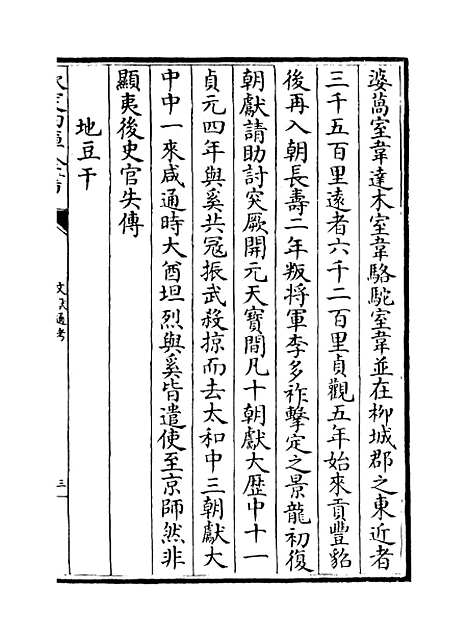 婆萵室韋達木室韋駱駝室韋並在柳城郡之東近者
三千五百里遠者六千二百里貞觀五年始來貢豐貂
後再入朝長壽二年叛將軍李多祚擊定之景龍初復
朝獻請助討突厥開元天寶間凡十朝獻大歷中十一
貞元四年與奚共寇振武殺掠而去太和中三朝獻大
中中一來咸通時大酋怛烈與奚皆遣使至京師然非
顯夷後史官失傳
地豆干
欽定四庫全書
文獻通考